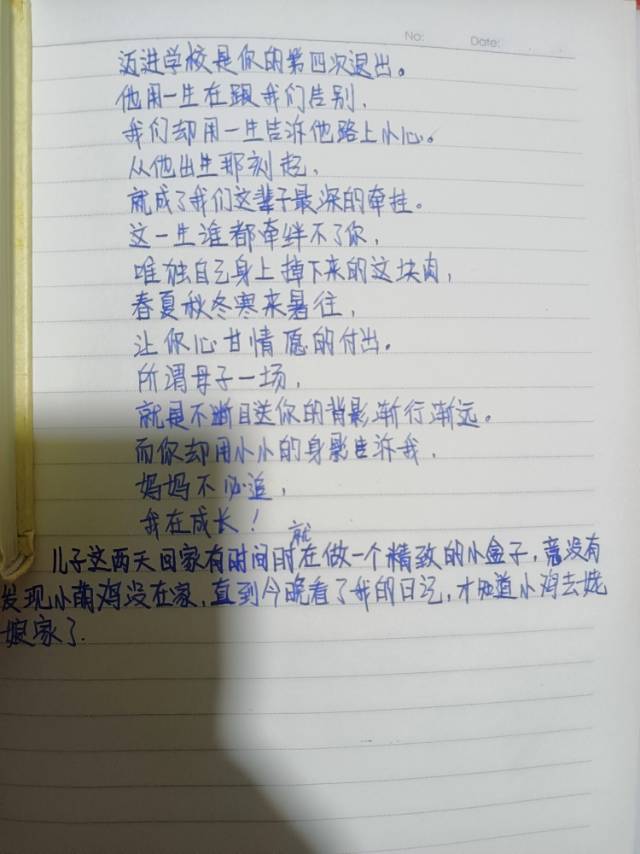 No:
Date:
迈进学校是你的第四次退出。
他用一生在跟我们告别，
我们却用一生告诉他路上小心。
从他出生那刻起，
就成了我们这辈子最深的牵挂。
这一生谁都牵绊不了你，
唯独自己身上掉下来的这块肉，
春夏秋冬寒来暑往，
让你心甘情愿的付出。
所谓母子一场，
就是不断目送你的背影渐行渐远。
而你却用小小的身影告诉我，
妈妈不必追，
我在成长！
儿子这两天回家有时间时就在做一个精致的小盒子，竟没有
发现小萌鸿没在家，直到今晚看了我的日记，才知道小鸿去姥
娘家了.